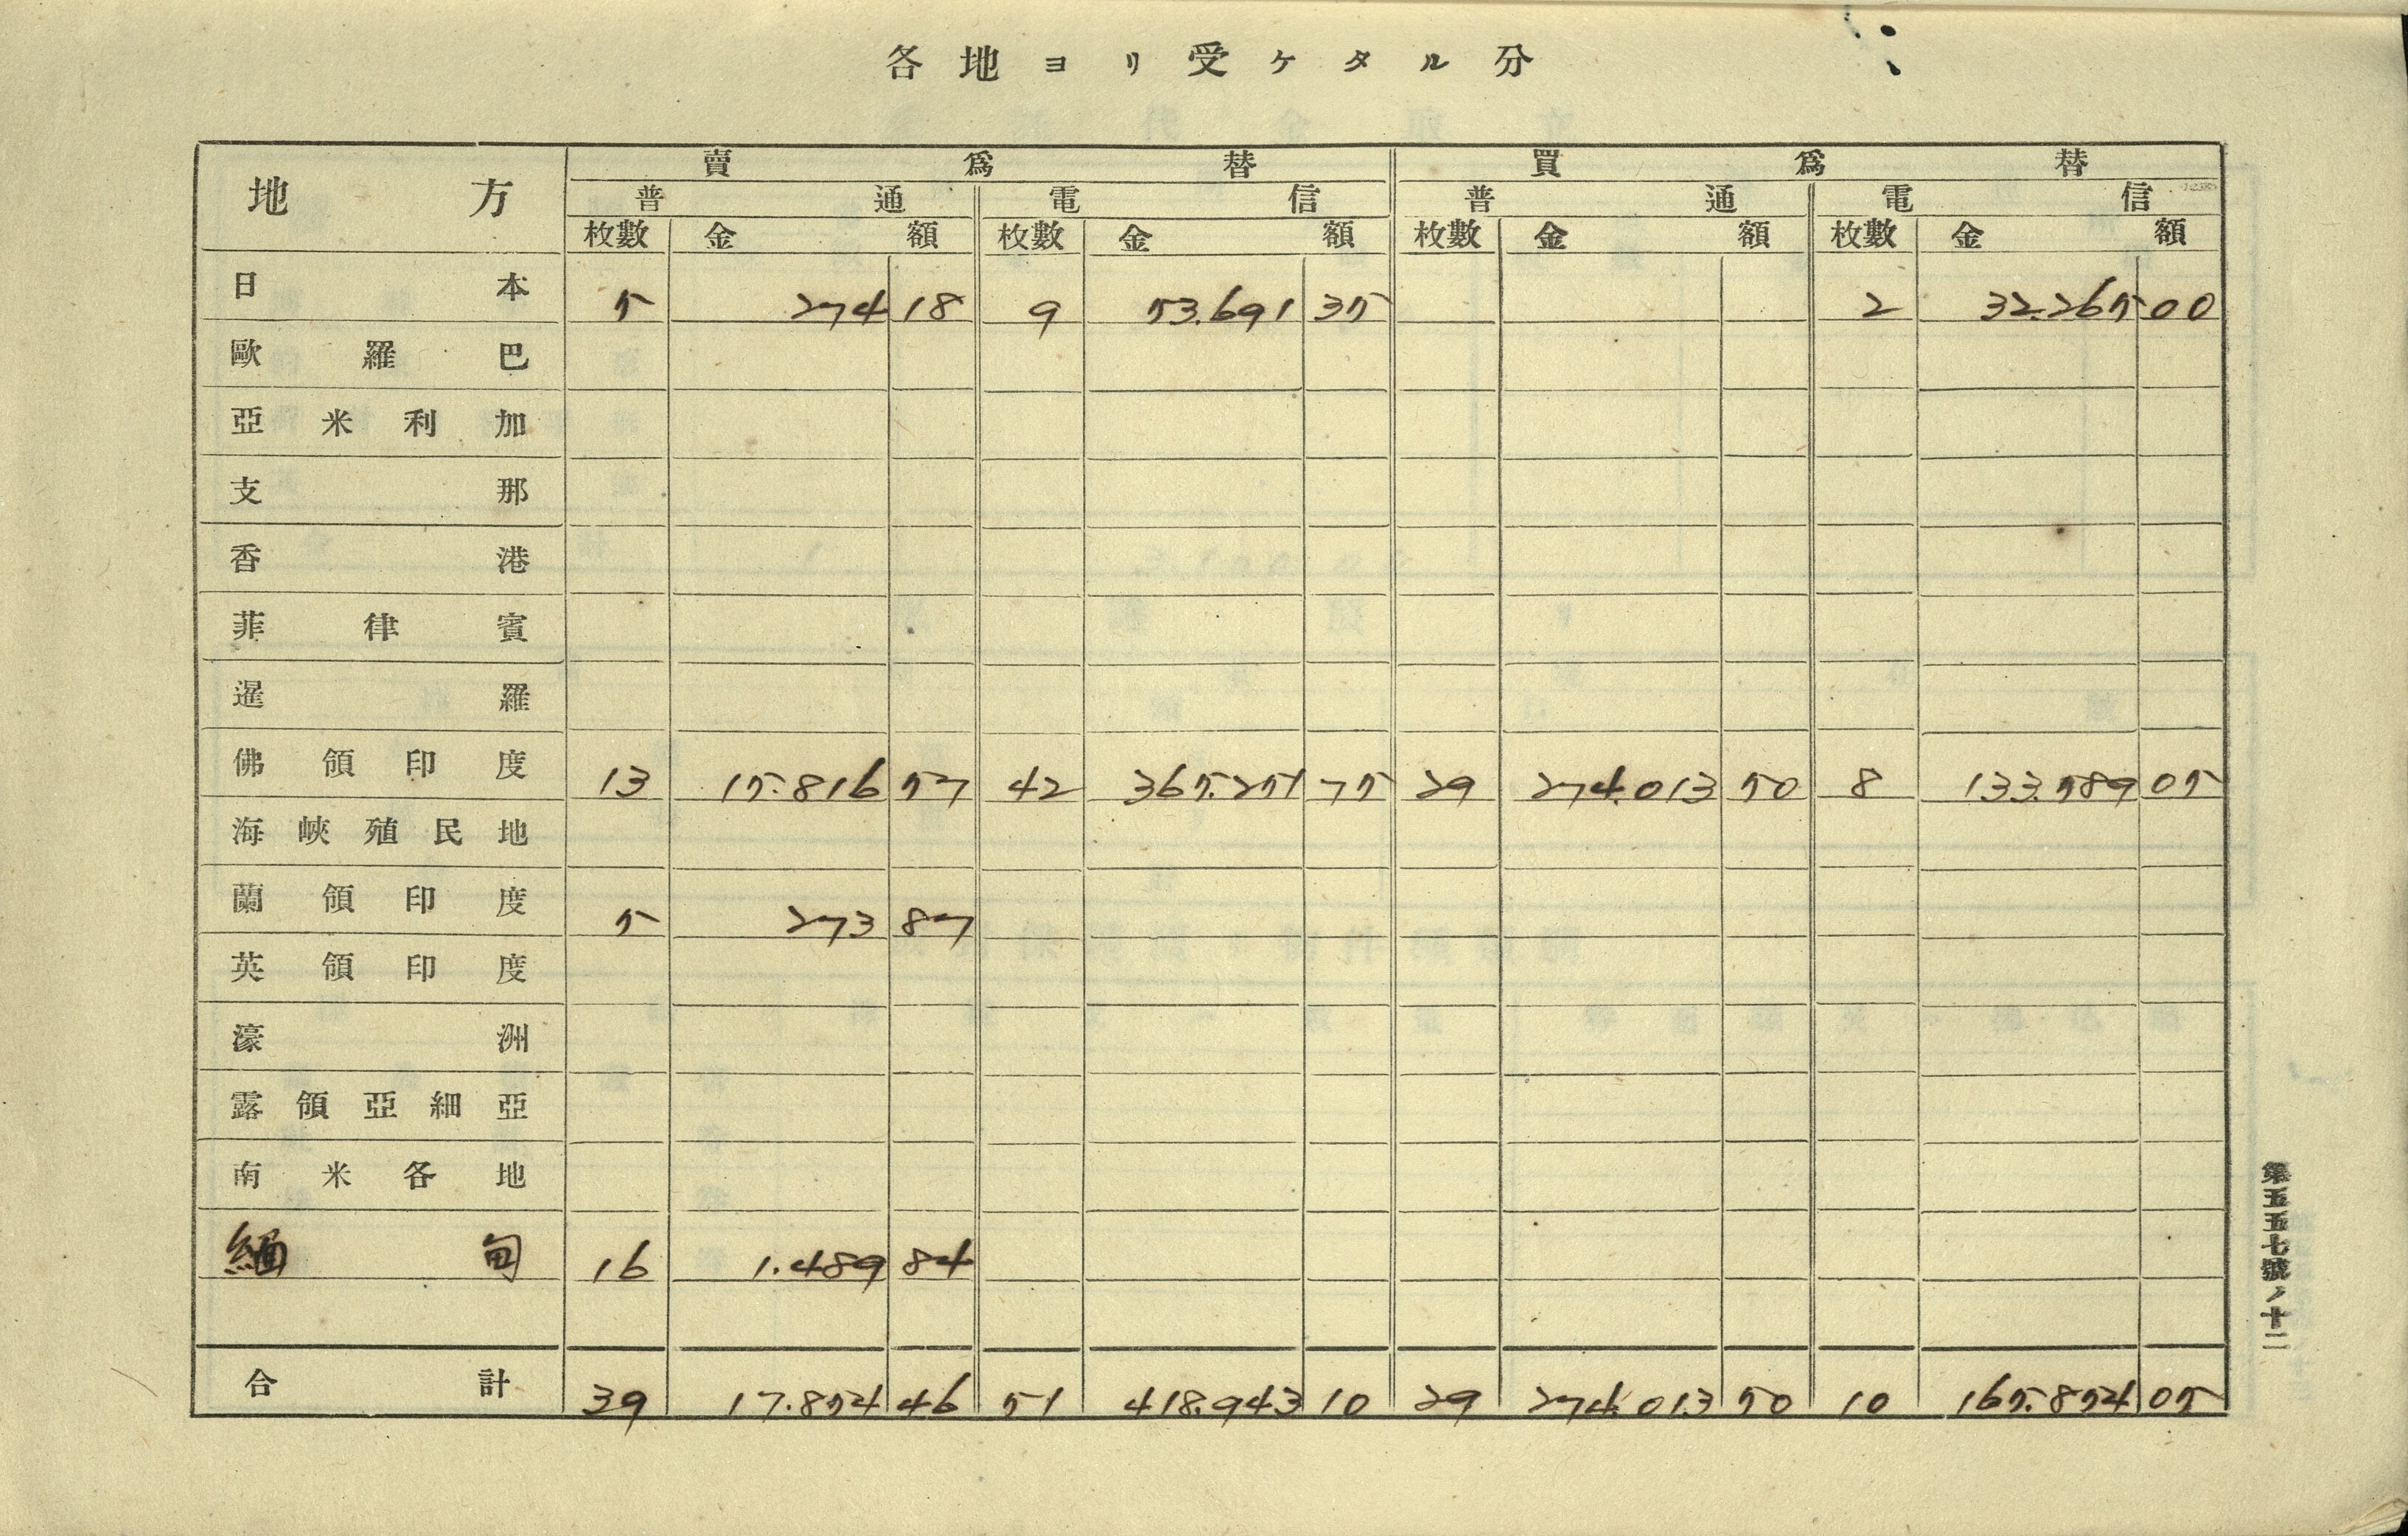 各地ヨリ受ケタル分
地方 賣爲替 買爲替
普通 電信 普通 電信
枚數 金額 枚數 金額 枚數 金額 枚數 金額
日本 5 274 18 9 53.691 35 2 32.265 00
歐羅巴
亞米利加
支那
香港
菲律賓
暹羅
佛領印度 13 15.816 57 42 365.251 75 29 274.013 50 8 133.589 05
海峽殖民地
蘭領印度 5 273 87
英領印度
濠洲
露領亞細亞
南米各地
緬甸 16 1.489 84
合計 39 17.854 46 51 418.943 10 29 274.013 50 10 165.854 05
第五五七號ノ十二